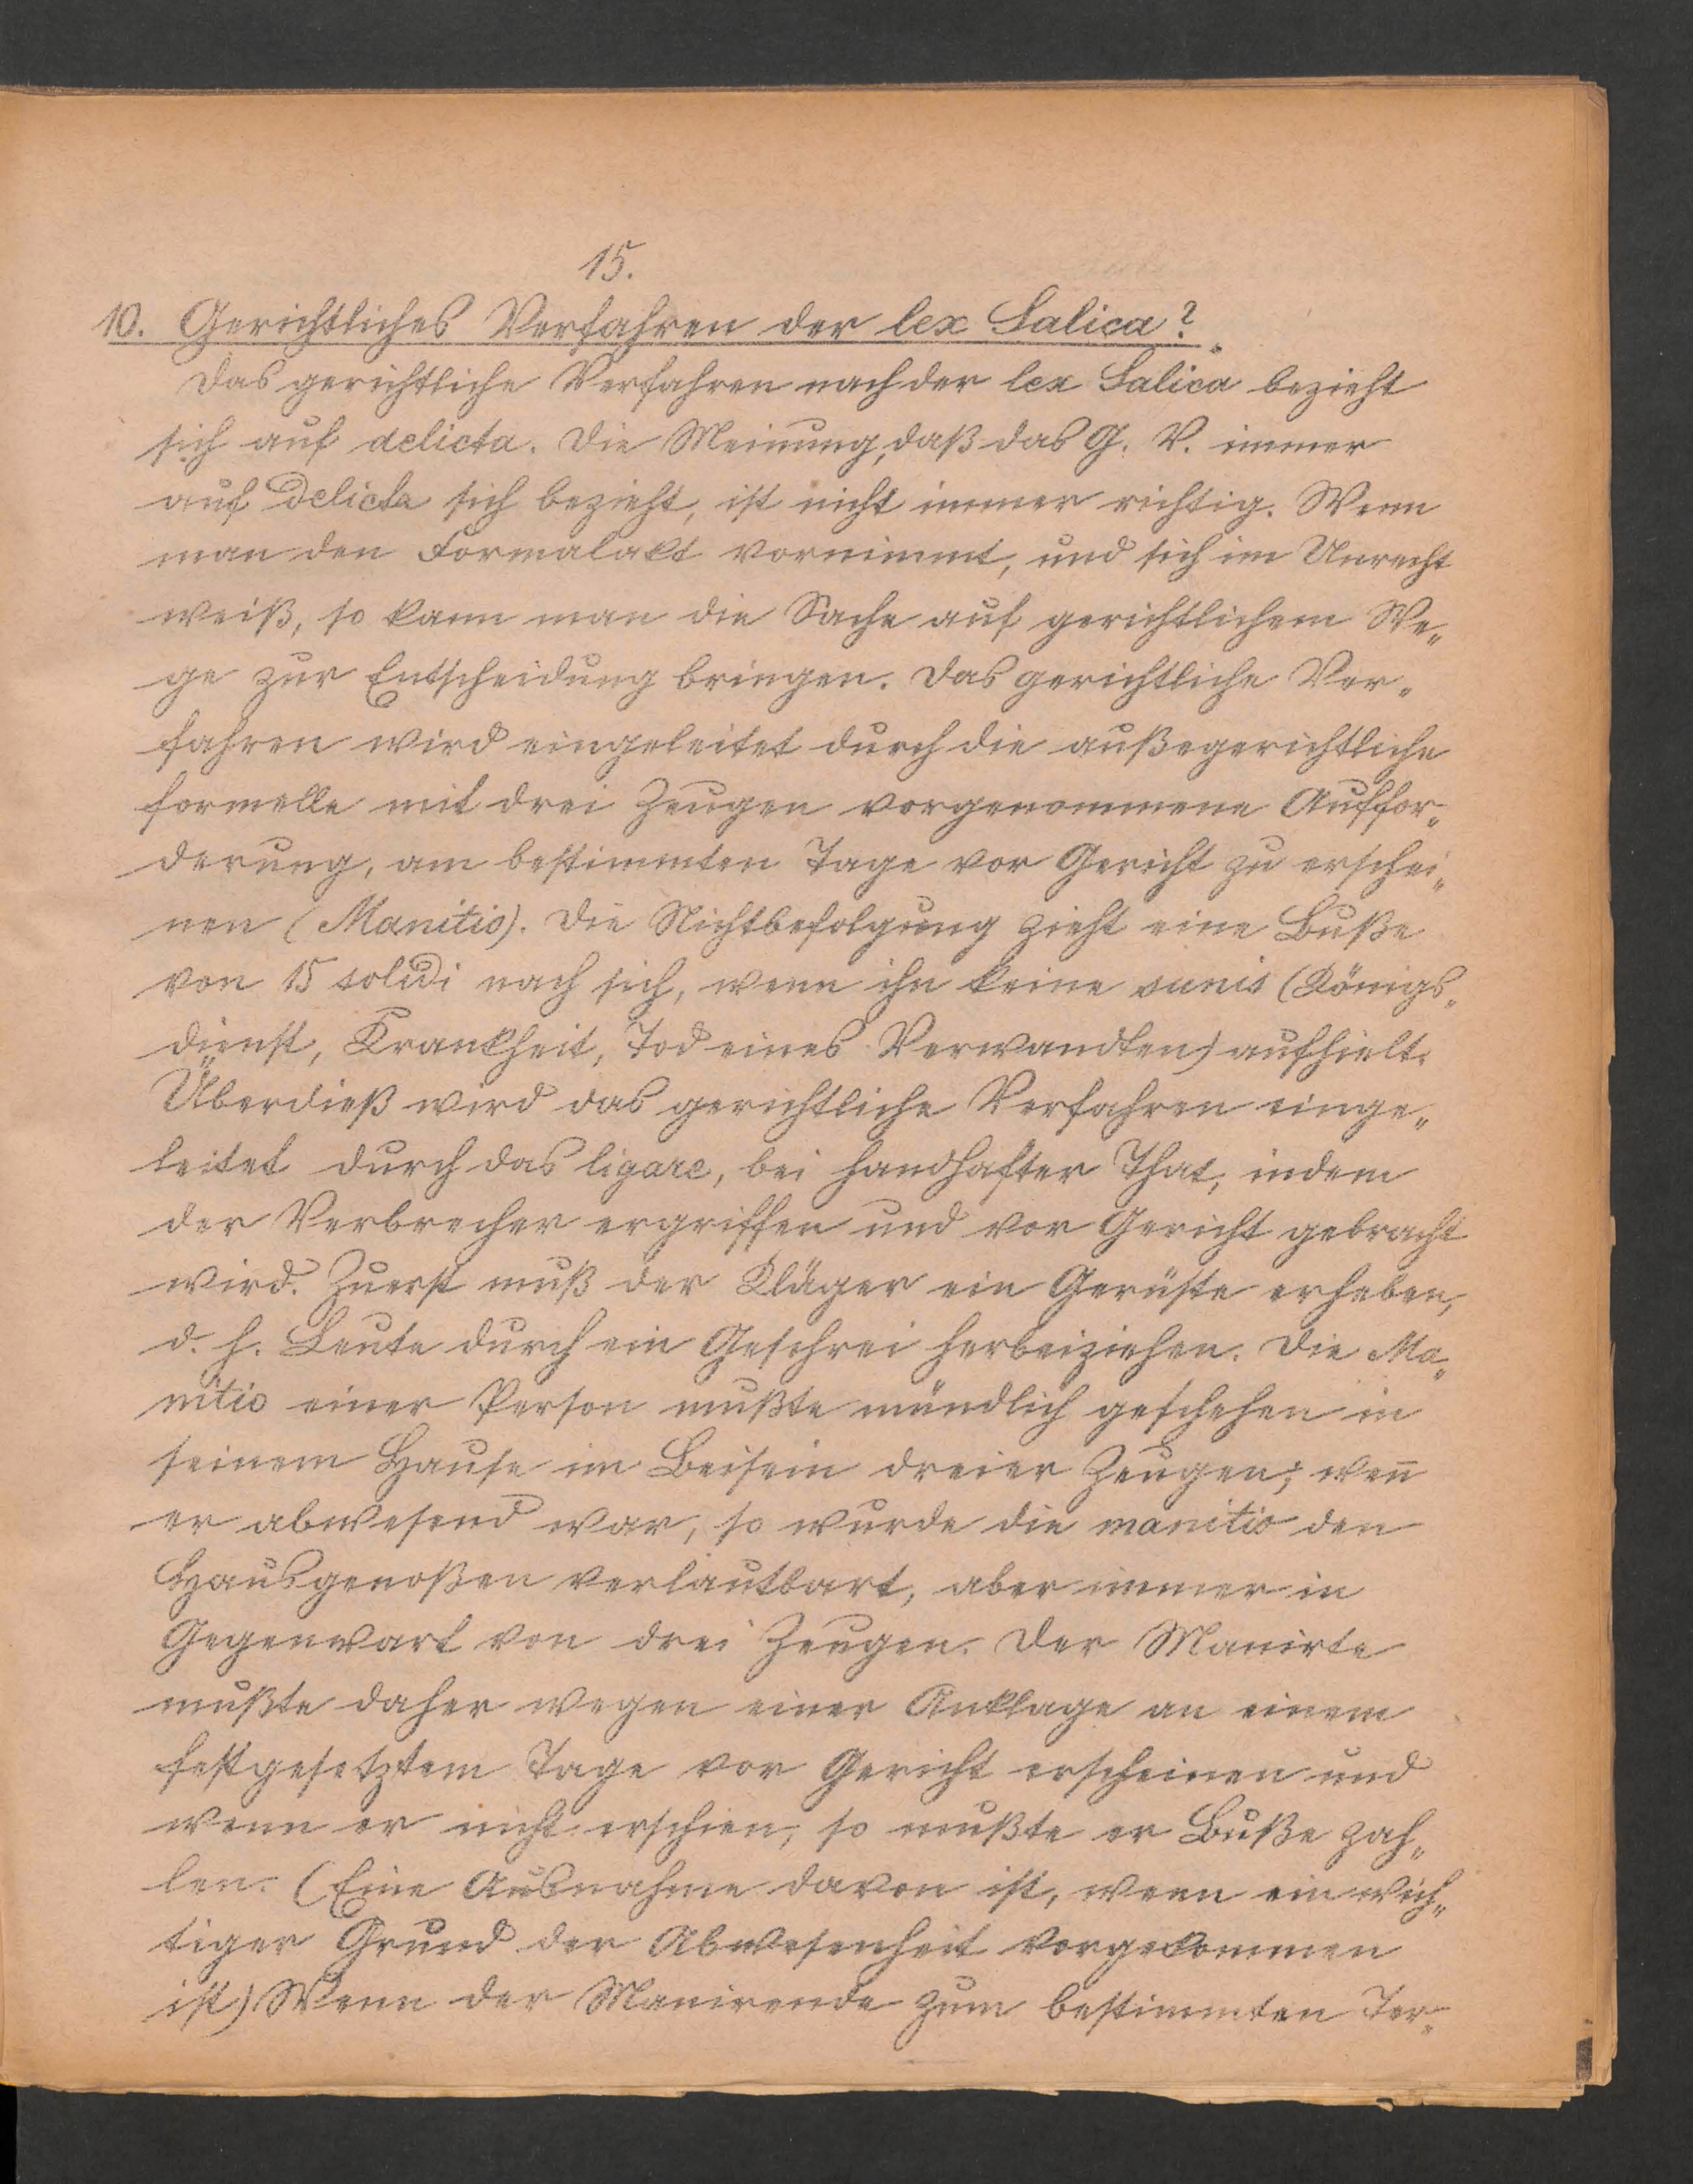 15.
10. Gerichtliches Verfahren der lex Salica?
Das gerichtliche Verfahren nach der lex Salica bezieht
sich auf delicta. Die Meinung, daß das G. V. immer
auf Delicta sich bezieht, ist nicht immer richtig. Wenn
man den Formalakt vornimmt, und sich im Unrecht
weiß, so kann man die Sache auf gerichtlichem We„
ge zur Entscheidung bringen. Das gerichtliche Ver„
fahren wird eingeleitet durch die außegerichtliche
formelle mit drei Zeugen vorgenommene Auffor„
derung, am bestimmten Tage vor Gericht zu erschei„
nen (Manitio). Die Nichtbefolgung zieht eine Buße
von 15 solidi nach sich, wenn ihn keine sunis (Königs„
dienst, Krankheit, Tod eines Verwandten) aufhielt.
Überdieß wird das gerichtliche Verfahren einge„
leitet durch das ligare, bei handhafter That, indem
der Verbrecher ergriffen und vor Gericht gebracht
wird. Zuerst muß der Kläger ein Gerüfte erheben,
d. h. Leute durch ein Geschrei herbeiziehen. Die Ma„
nitio einer Person mußte mündlich geschehen in
seinem Hause im Beisein dreier Zeugen; wen̅
er abwesend war, so wurde die manitio den
Hausgenoßen verlautbart, aber immer in
Gegenwart von drei Zeugen. Der Manirte
mußte daher wegen einer Anklage an einem
festgesetztem Tage vor Gericht erscheinen und
wenn er nicht erschien, so mußte er Buße zah„
len. (Eine Ausnahme davon ist, wenn ein wich„
tiger Grund der Abwesenheit vorgekommen
ist) Wenn der Manirende zum bestimmten Ter„